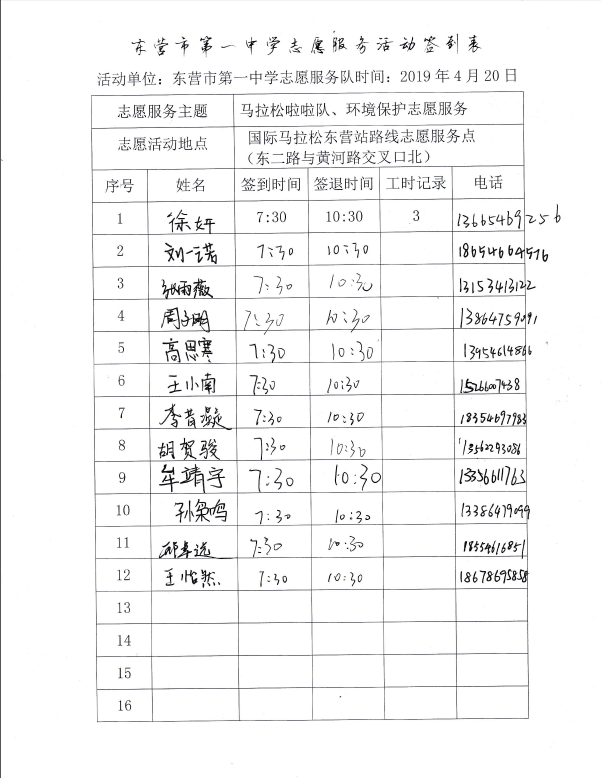 东营市第一中学志愿服务活动签到表
活动单位：东营市第一中学志愿服务队时间：2019年4月20日
志愿服务主题 马拉松啦啦队、环境保护志愿服务
志愿活动地点 国际马拉松东营站路线志愿服务点
（东二路与黄河路交叉口北）
序号 姓名 签到时间 签退时间 工时记录 电话
1 徐妍 7:30 10:30 3 13665469256
2 刘一诺 7:30 10:30 18654664516
3 张雨薇 7:30 10:30 13153413122
4 周子明 7:30 10:30 13864759091
5 高思寒 7:30 10:30 13954614866
6 王小南 7:30 10:30 15266007438
7 李昔凝 7:30 10:30 18354697983
8 胡贺骏 7:30 10:30 13562293086
9 牟靖宇 7:30 10:30 13356611763
10 孙枭鸣 7:30 10:30 13386479099
11 7:30 10:30 18554616851
12 王怡然 7:30 10:30 18678695858
13
14
15
16